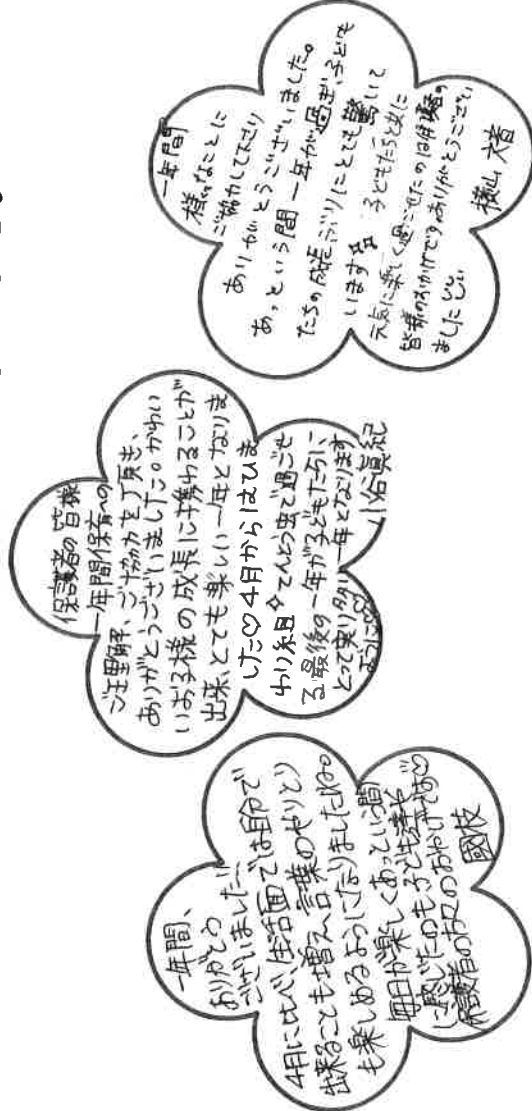 一年間、
ありがとう
ございました!!
4月に比べ、生活面では自分で
出来ることも増え、言葉のやりとり
も楽しめるようになりましたね。
毎日が楽しくあっという間
に感じたのも子ども達と
保護者の方々のおかげです♡
國枝
保護者の皆様
一年間保育への
ご理解、ご協力を頂き、
ありがとうございました。かわい
いお子様の成長に携わることが
出来、とても楽しい一年となりま
した♡4月からはひま
わり組✧てんとう虫で過ごせ
る最後の一年が子どもたちに
とって実り多い一年となります
ように♡
眞紀
一年間
様々なことに
ご協力して下さり
ありがとうございました。
あっという間に一年が過ぎ、子ども
たちの成長ぶりにとても驚いて
います✧✧ 子どもたちと共に
元気に楽しく過ごせたのは保護者の
皆様のおかげです。ありがとうござい
ました
横山